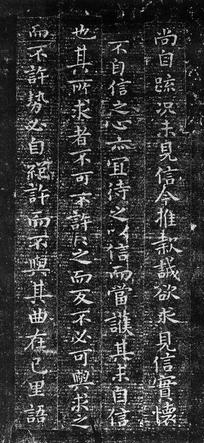 尚自疏况未見信今推款誠欲求見信實懷
不自信之心亦宜待之以信而當護其未自信
也其所求者不可不許許之而反不必可與求之
而不許勢必自絕許而不與其曲在己里語